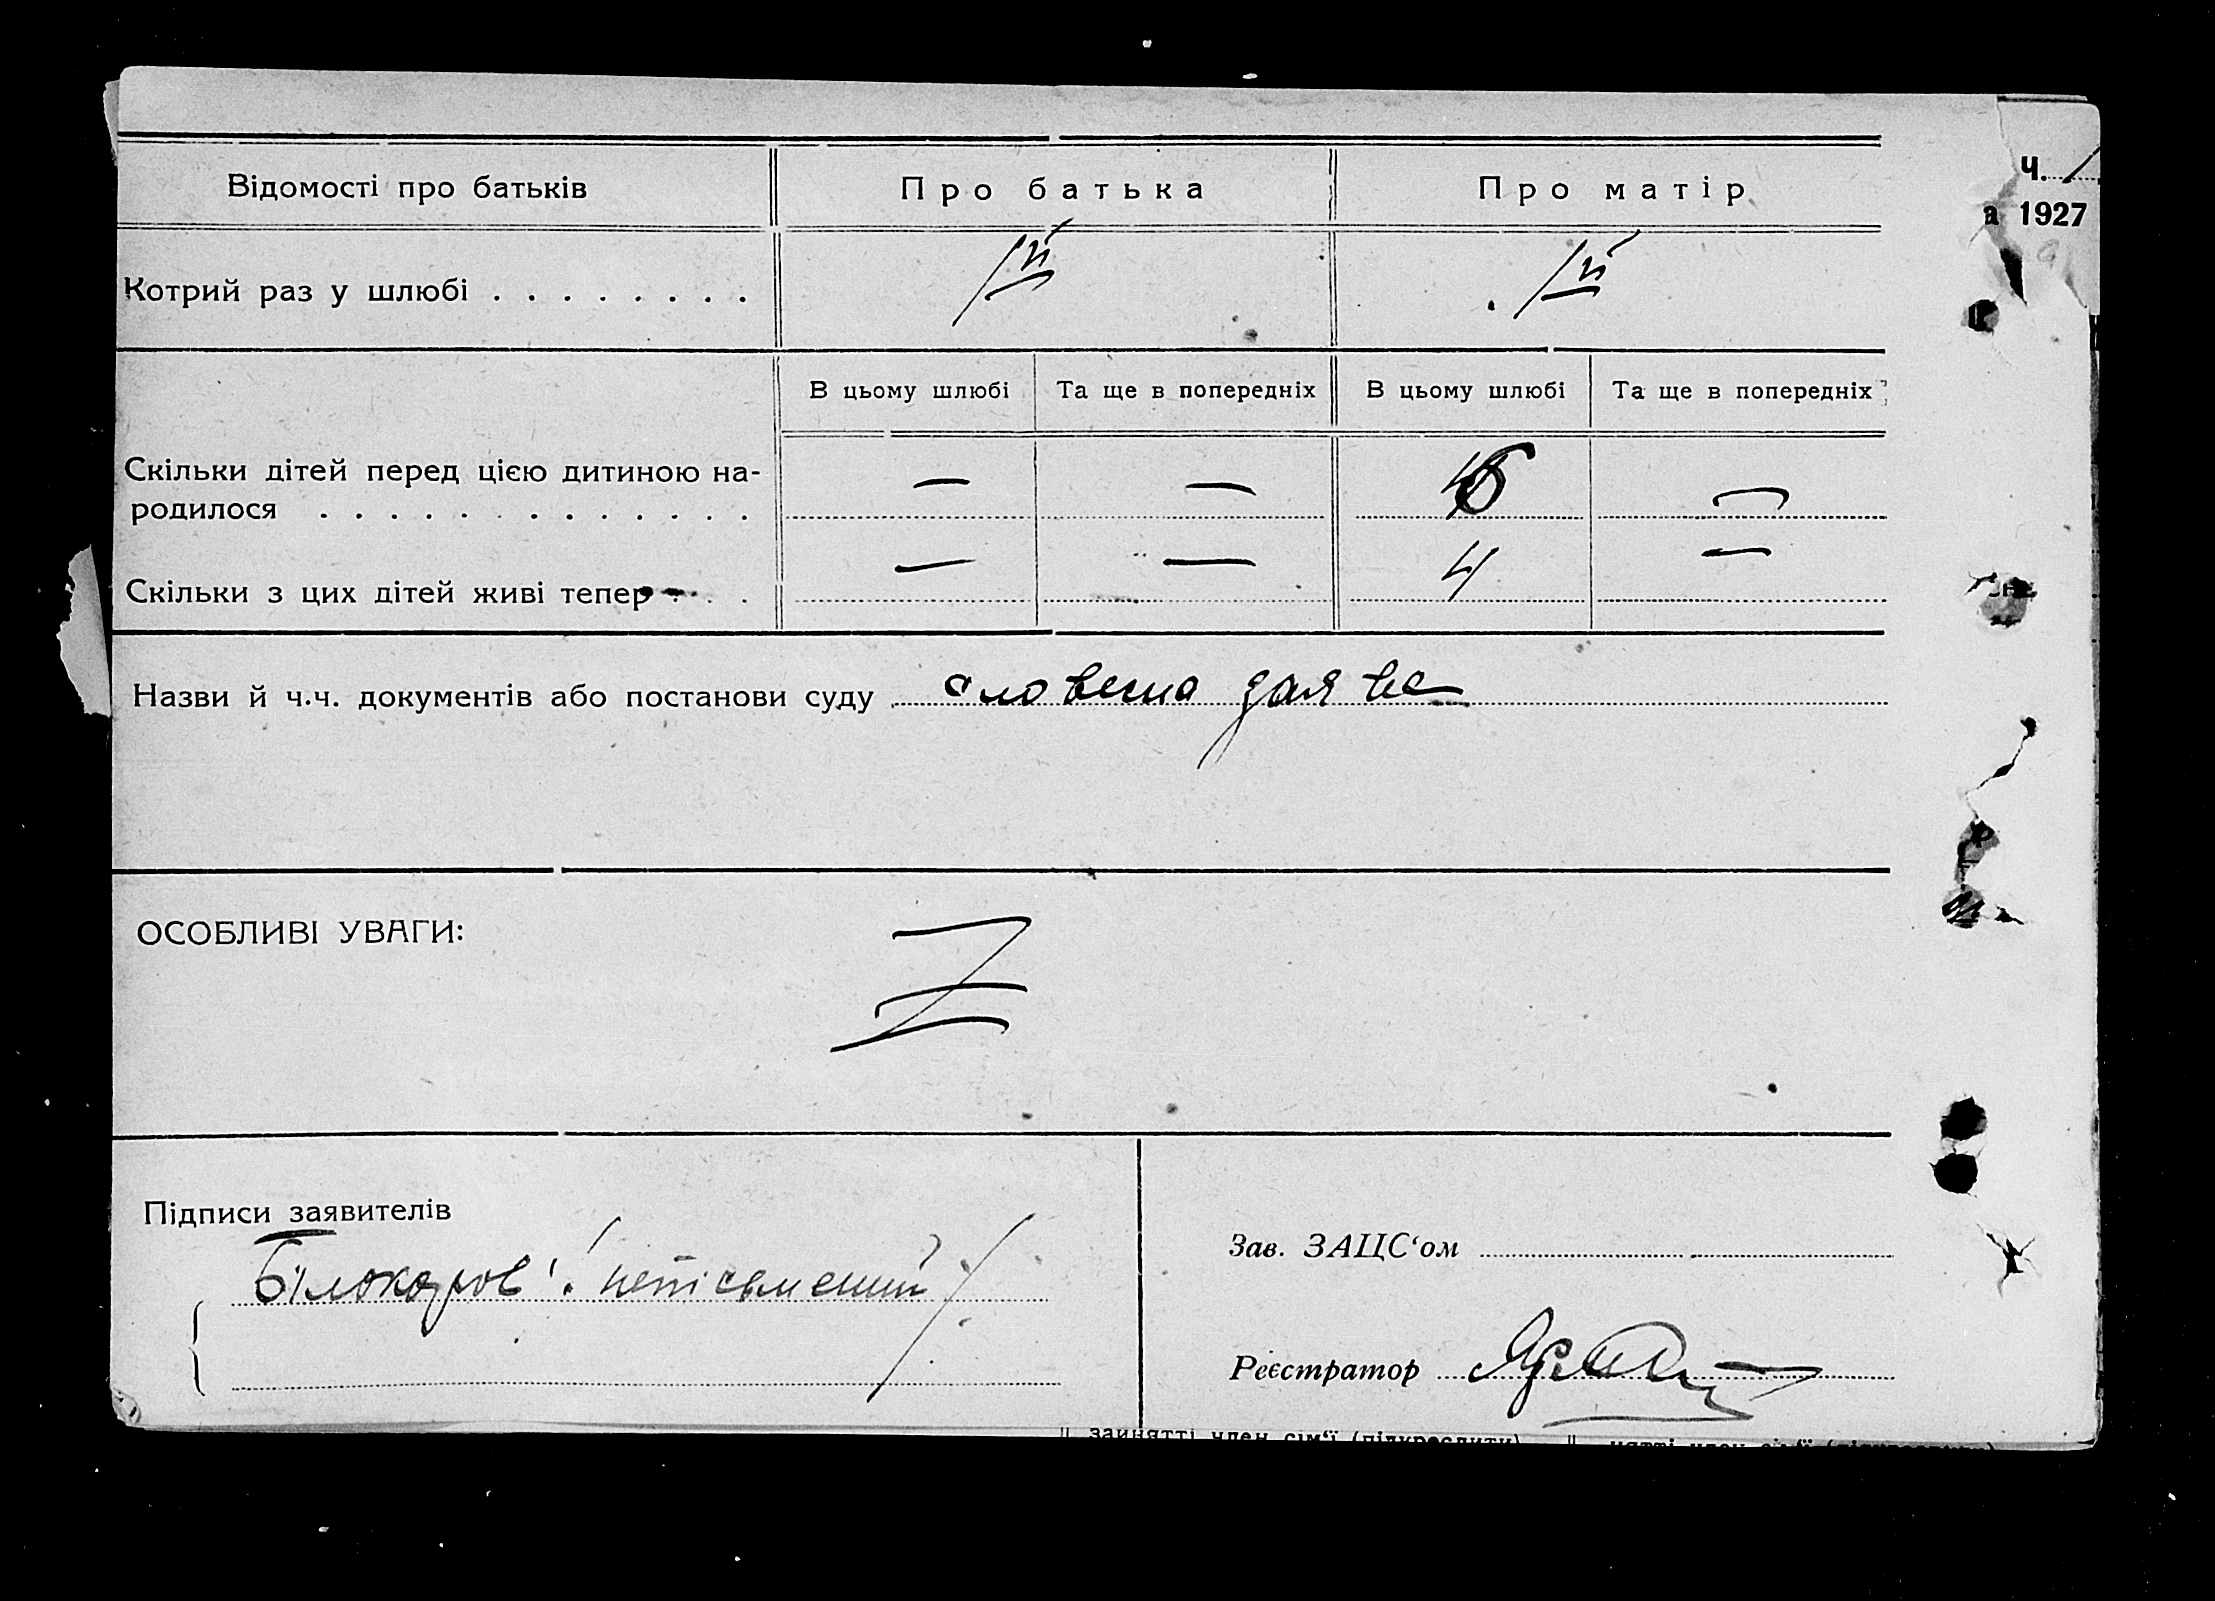 Відомості про батьків Про батька Про матір
Ч.
а 1927
Котрий раз у шлюбі . . . . . . . . 1й 1й
В цьому шлюбі Та ще в попередніх В цьому шлюбі Та ще в попередніх
Скільки дітей перед цією дитиною на-
родилося . . . . . . . . . . . . . — — 6 —
Скільки з цих дітей живі тепер . . . — — 4 —
Назви й ч.ч. документів або постанови суду словесна заява
ОСОБЛИВІ УВАГИ:
Підписи заявителів
Білокоров
Зав. ЗАЦС‘ом
Реєстратор
зайнятті член сім‘ї (підкреслити)